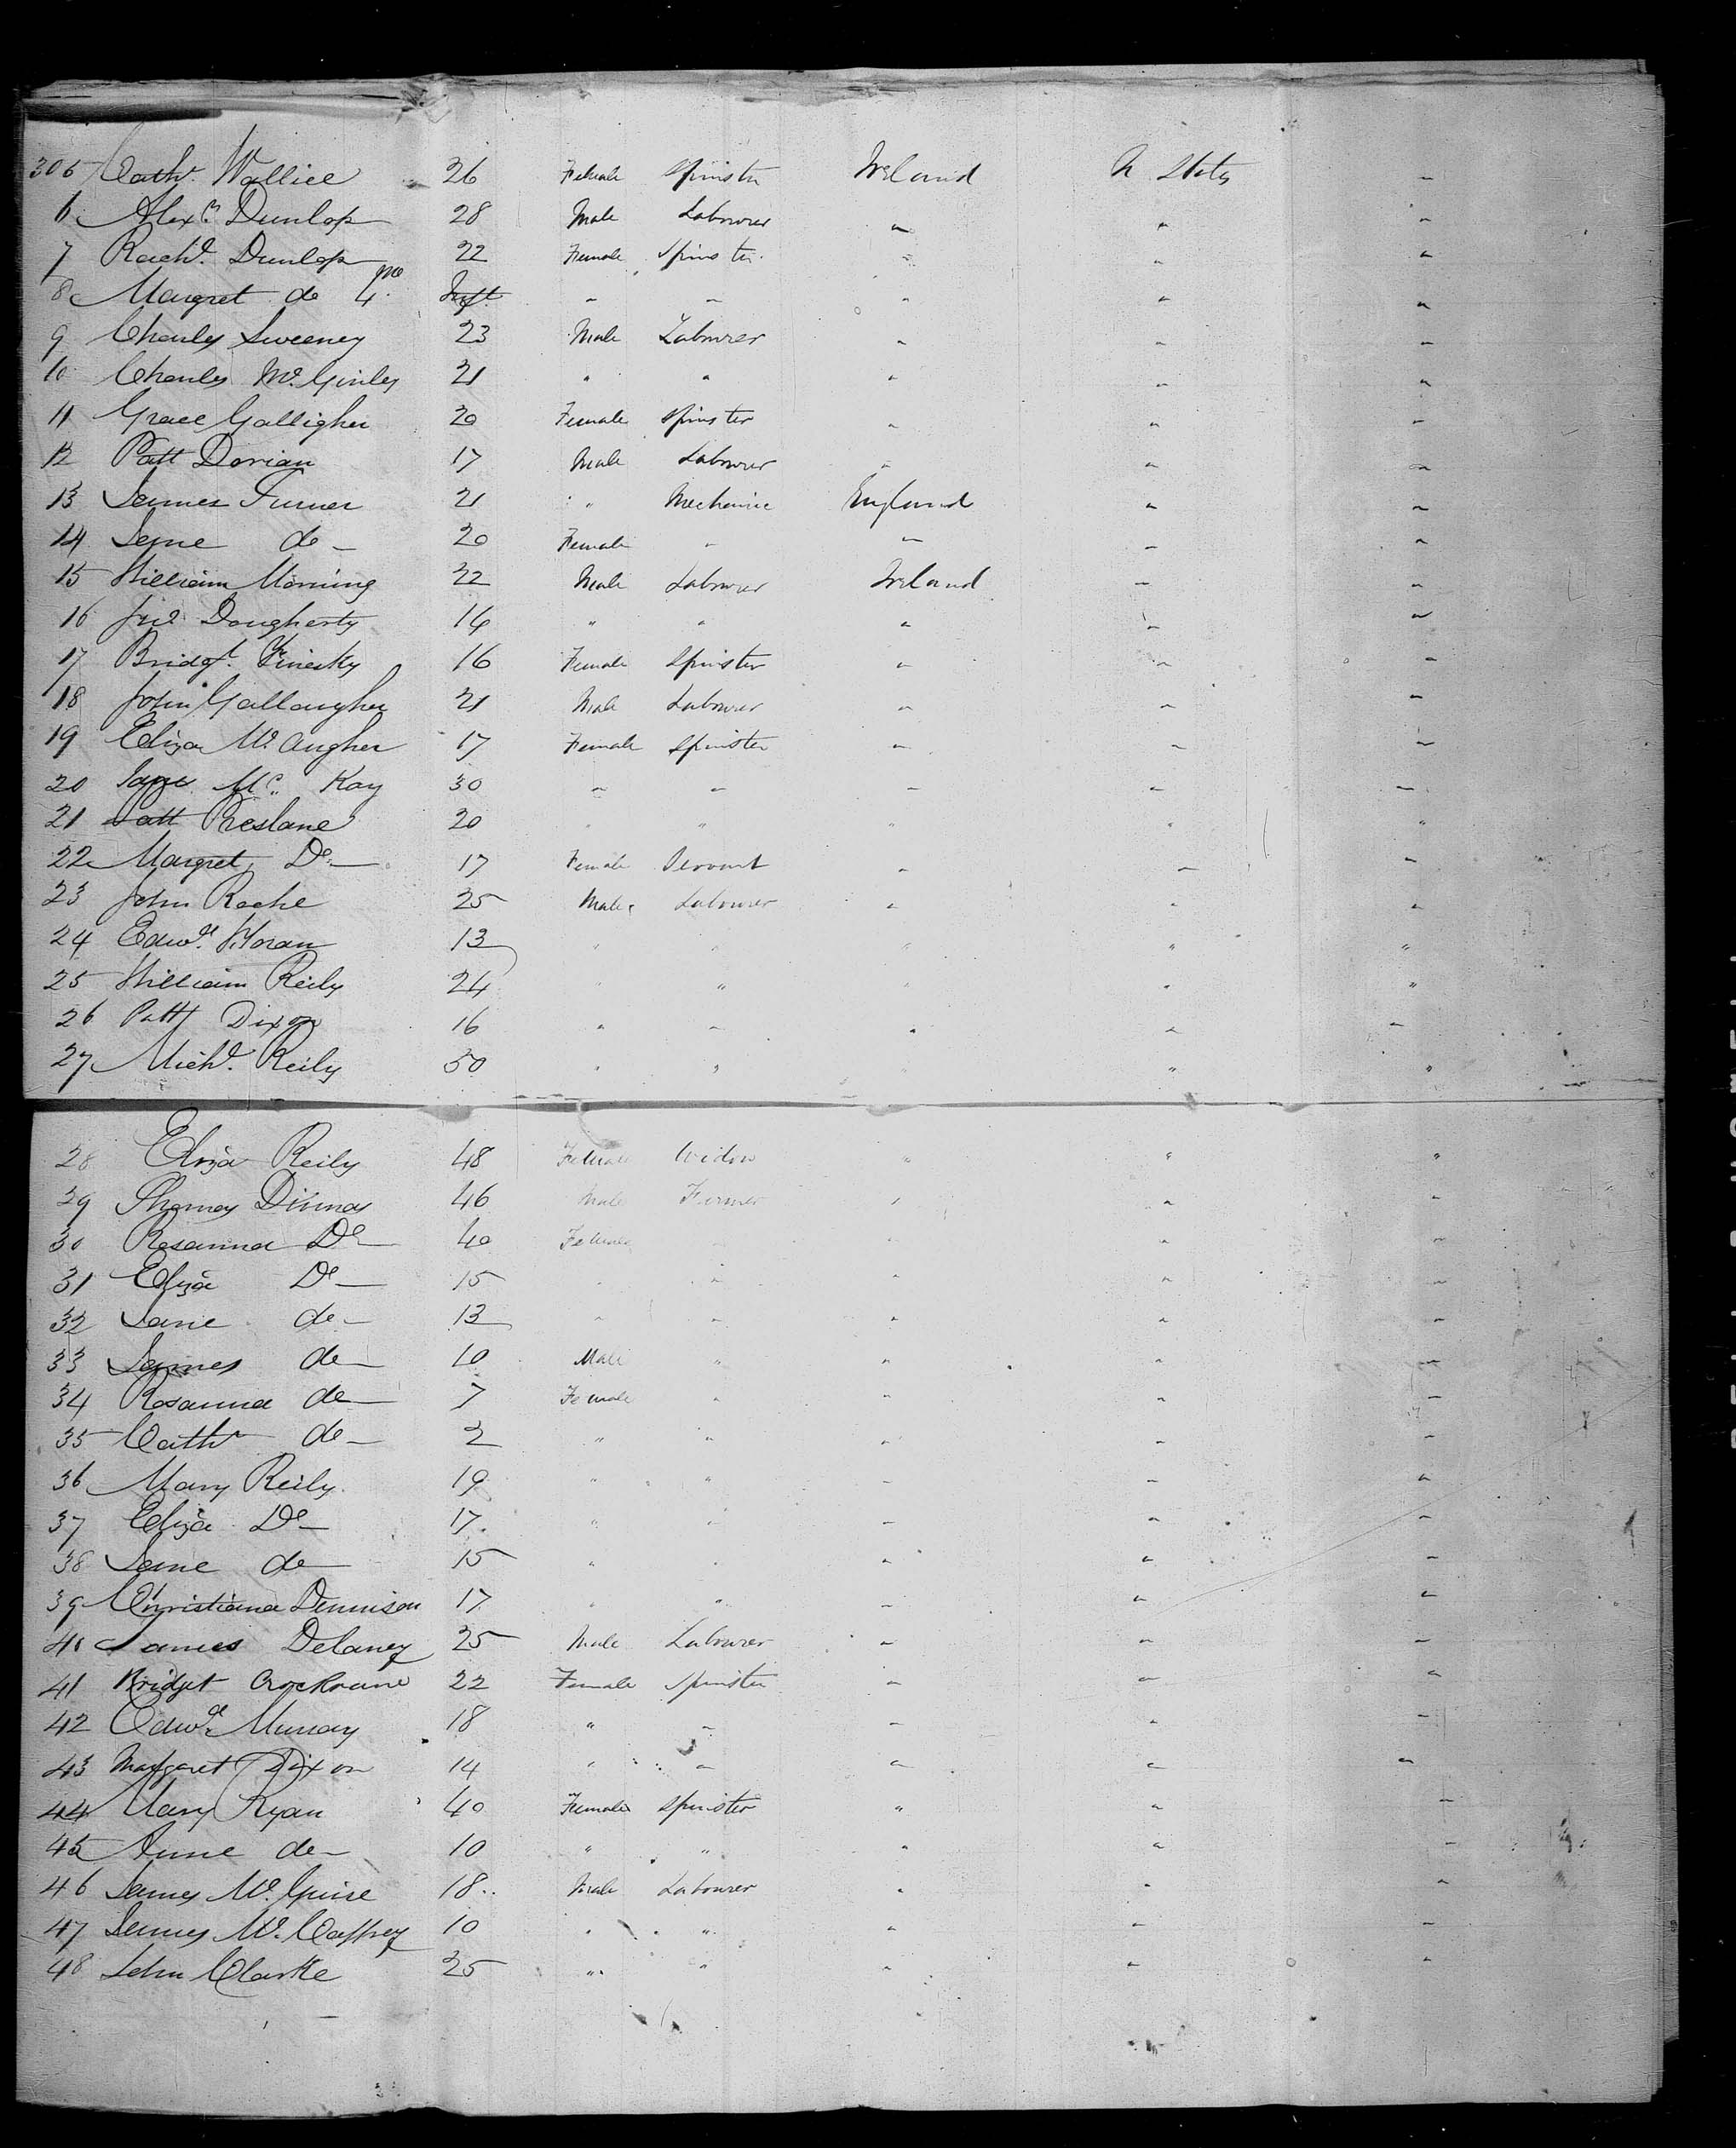 305 Cath. Wallice 26 Female Spinster Ireland U States "
6 Alexr. Dunlop 28 Male Labourer " " "
7 Rachl. Dunlop 22 Female Spinster " " "
8 Margret do 4 mo Inft " " " " "
9 Charles Sweeney 23 Male Labourer " " "
10 Charles Mc. Ginley 21 " " " " "
11 Grace Galligher 20 Female Spinster " " "
12 Patt Dorian 17 Male Labourer " " "
13 James Turner 21 " Mechanic England " "
14 Jane do 20 Female " " " "
15 William Morning 22 Male Labourer Ireland " "
16 Dougherty 14 " " " " "
17 Bridgt. 16 Female Spinster " " "
18 John Gallaugher 21 Male Labourer " " "
19 Eliza Mc. Augher 17 Female Spinster " " "
20 Jane Mc. Kay 30 " " " " "
21 Patt Breslane 20 " " " " "
22 Margret Do 17 Female Servant " " "
23 John Roche 25 Male Labourer " " "
24 Edwd. Horan 13 " " " " "
25 William Reily 24 " " " " "
26 Patt Dixon 16 " " " " "
27 Michl. Reily 50 " " " " "
28 Eliza Reily 48 Female Widow " " "
29 Thomas 46 Male Farmer " " "
30 Rosanna Do 40 Female " " " "
31 Eliza Do 15 " " " " "
32 Jane do 13 " " " " "
33 James do 10 Male " " " "
34 Rosanna do 7 Female " " " "
35 Cath. do 2 " " " " "
36 Mary Reily 19 " " " " "
37 Eliza Do 17 " " " " "
38 Jane do 15 " " " " "
39 Christiana Dennison 17 " " " " "
40 James Delaney 25 Male Labourer " " "
41 Bridget 22 Female Spinster " " "
42 Edwd. Murray 18 " " " " "
43 Margaret Dixon 14 " " " " "
44 Mary Ryan 40 Female Spinster " " "
45 Anne do 10 " " " " "
46 James Mc. Guire 18 Male Labourer " " "
47 James Mc. Caffrey 10 " " " " "
48 John Clarke 25 " " " " "